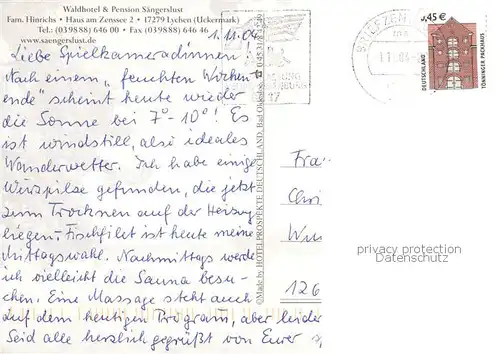 Waldhotel & Pension Sängerslust
Fam. Hinrichs • Haus am Zenssee 2 • 17279 Lychen (Uckermark)
Tel.: (039888) 646 00 • Fax (039888) 646 46
www.saengerslust.de
1.11.04
Liebe Spielkameradinnen!
Nach einem „feuchten Wochen-
ende" scheint heute wieder
die Sonne bei 7°-10°! Es
ist windstill, also ideales
Wanderwetter. Ich habe einige
Pilze gefunden, die jetzt
zum Trocknen auf der Heizung
liegen. Fischfilet ist heute meine
Mittagswahl. Nachmittags werde
ich vielleicht die Sauna besu-
chen. Eine Massage steht auch
auf dem heutigen Program, aber leider
Seid alle herzlich gegrüßt von Eurer
©Made by HOTELPROSPEKTE DEUTSCHLAND, Bad
BRIEFZEN
0,45 €
DEUTSCHLAND
TÖNNINGER PACKHAUS
Fra
Chri
126
privacy protection
Datenschutz